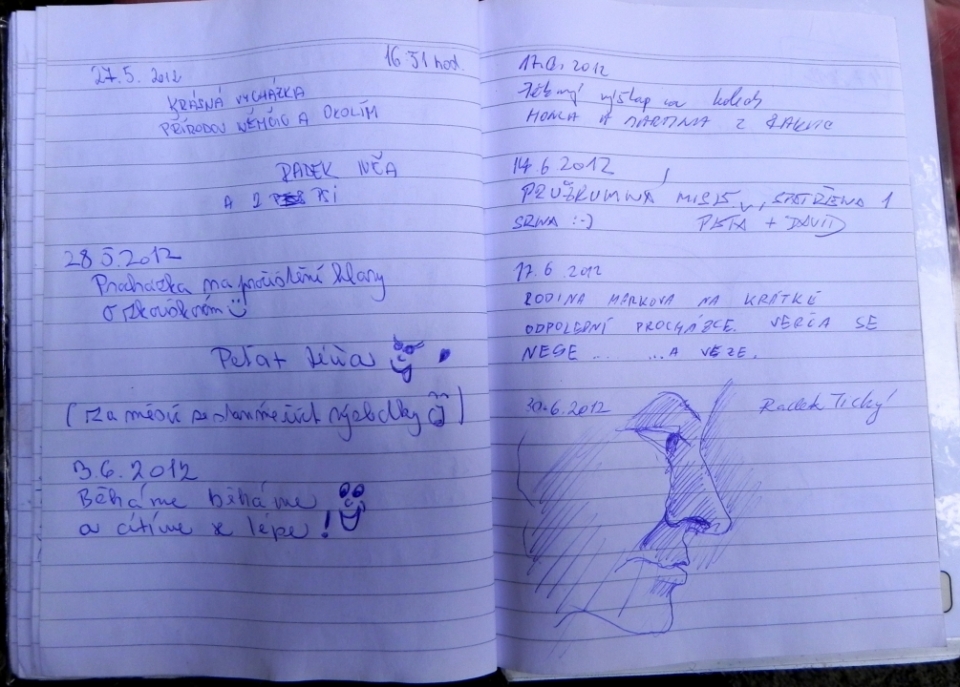 27.5. 2012 16:51 hod.
KRÁSNÁ VYCHÁZKA
PŘÍRODOU NĚMČIC A OKOLÍM
RADEK
A 2 PSI
28.5.2012
Procházka na pročištění hlavy
Peťa +
(Za měsíc se výsledky
3.6. 2012
Běháme běháme
a cítíme se lépe!
2012
výšlap na kolech
MARTINA Z RAKVIC
14.6.2012
SPATŘENA 1
SRNA :-) PEŤA + DAVID
17.6.2012
RODINA MARKOVA NA KRÁTKÉ
ODPOLEDNÍ PROCHÁZCE. VERČA SE
NESE ... ...A VEZE.
30.6.2012 Radek Tichý